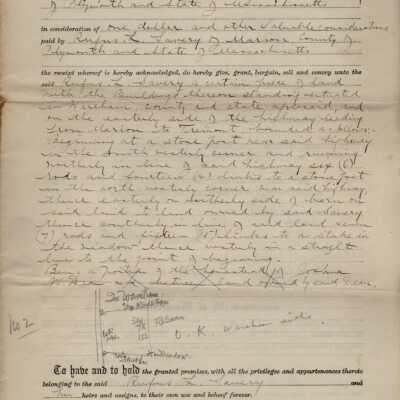 of Plymouth and State of Massachusetts
in consideration of One dollar and other valuable considerations
paid by Rufus L. Savery of Marion County of
Plymouth and State of Massachusetts
the receipt whereof is hereby acknowledged, do hereby give, grant, bargain, sell and convey unto the
said Rufus L. Savery a certain piece of land
with the Buildings thereon standing situated
in Wareham, County and State aforesaid, and
on the easterly side of the highway leading
from Marion to Tremont, bounded as follows:
Beginning at a stone post near said highway
in the South westerly corner and running
northerly in line of said highway six (6)
rods and fourteen (14) links to a stone post
in the north westerly corner near said highway,
thence easterly on northerly side of
said land to land owned by said Savery
thence southerly in line of said land seven
(7) rods and links to a stake in
the meadow thence westerly in a straight
line to the point of beginning.
Being a portion of the homestead of Joshua
No 2
O. K. Wareham side.
To have and to hold the granted premises, with all the privileges and appurtenances thereto
belonging to the said Rufus L. Savery and
his heirs and assigns, to their own use and behoof forever.